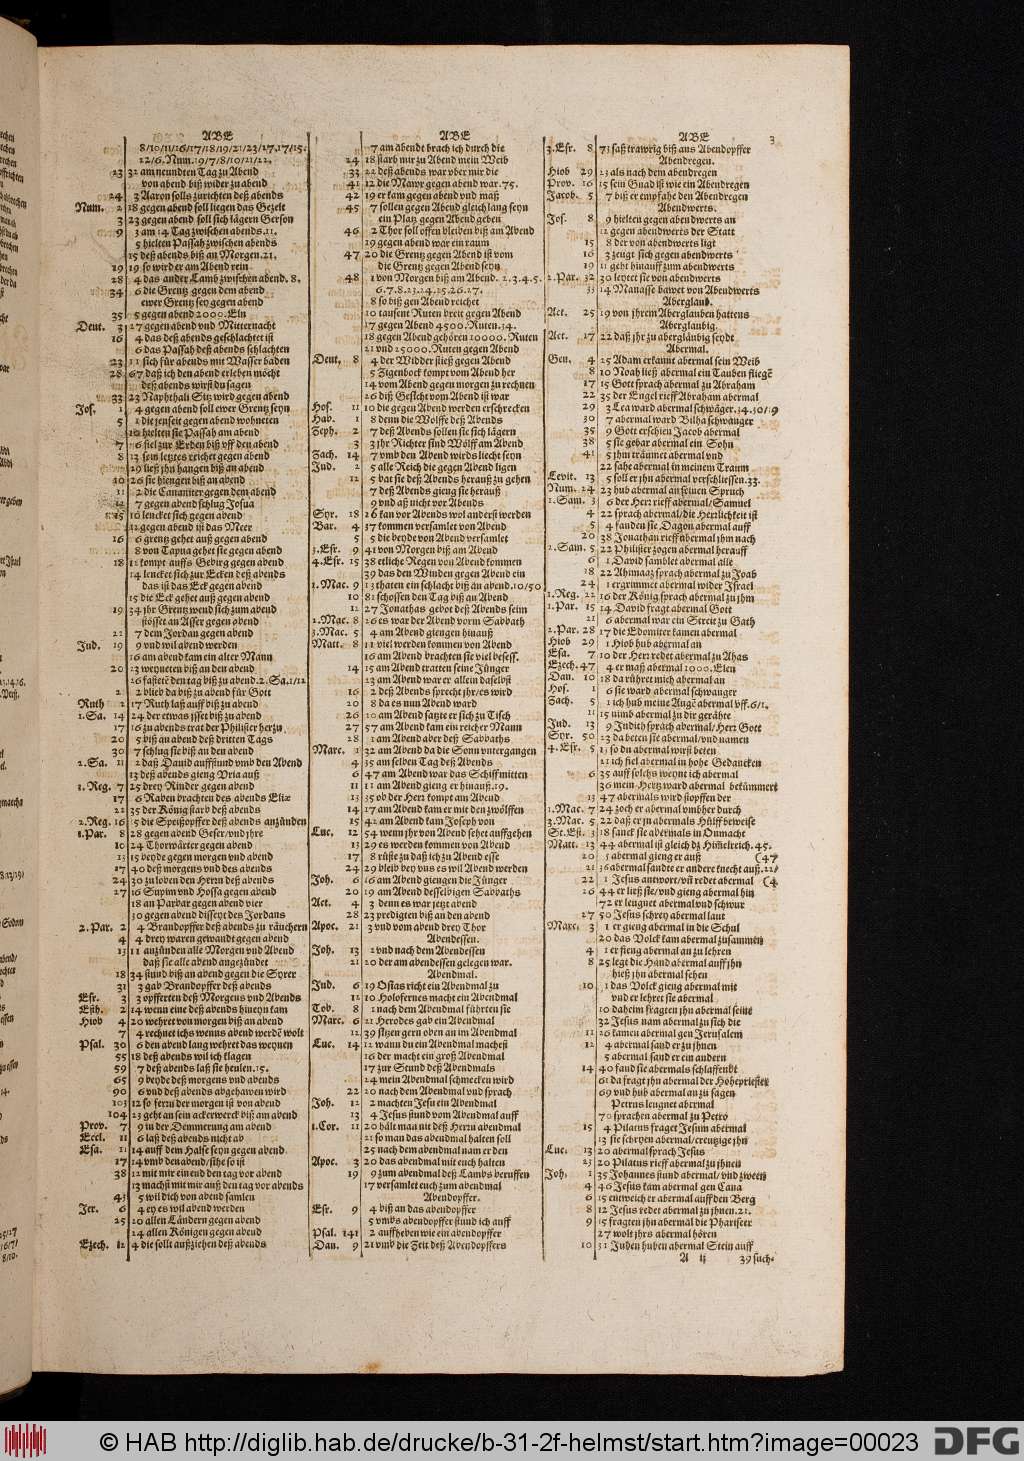 ABE
8/10/11/16/17/18/19/21/23/27.17/15.
22/6. Num. 19/7/8/10/21/22.
23 32 am neundten Tag zu Abend
von abend biß wider zu abend
24 3 Aaron solls zurichten deß abends
Num. 2 18 gegen abend soll ligen das Gezelt
3 23 gegen abend soll sich lägern Gerson
9 3 am 14 Tag zwischen abends. 11.
5 hielten Passah zwischen abends
15 deß abends biß an Morgen. 21.
19 19 so wird er am Abend rein
28 4 das ander Lamb zwischen abend. 8.
34 6 die Grentz gegen dem abend
ewer Grentz sey gegen abend
35 5 gegen abend 2000. Eln
Deut. 3 27 gegen abend vnd Mitternacht
16 4 das deß abends geschlachtet ist
6 das Passah deß abends schlachten
23 11 sich für abends mit Wasser baden
28 67 daß ich den abend erleben möcht
deß abends wirst du sagen
33 23 Naphthali Sitz wird gegen abend
Jos. 1 4 gegen abend soll ewer Grentz seyn
5 1 die jenseit gegen abend wohneten
10 hielten sie Passah am abend
7 6 fiel zur Erden biß vff den abend
8 13 sein letztes reichet gegen abend
29 ließ jhn hangen biß an abend
10 26 sie hiengen biß an abend
11 2 die Cananiter gegen dem abend
12 7 gegen abend schlug Josua
15 10 lencket sich gegen abend
12 gegen abend ist das Meer
16 6 grentz gehet auß gegen abend
8 von Tapua gehet sie gegen abend
18 12 kompt auffs Gebirg gegen abend
14 lencket sich zur Ecken deß abends
das ist das Eck gegen abend
15 die Eck gehet auß gegen abend
19 34 jhr Grentz wend sich zum abend
stösset an Asser gegen abend
22 7 dem Jordan gegen abend
Jud. 19 9 vnd wil abend werden
16 am abend kam ein alter Mann
20 23 weyneten biß an den abend
26 fasteten den tag biß zu abend. 2. Sa. 1/12
2 2 blieb da biß zu abend für Gott
Ruth 2 17 Ruth laß auff biß zu abend
1. Sa. 14 24 der etwas jsset biß zu abend
17 16 zu abends trat der Philister herzu
20 5 biß an abend deß dritten Tags
30 7 schlug sie biß an den abend
2. Sa. 11 2 daß Dauid auffstund vmb den Abend
13 deß abends gieng Vria auß
1. Reg. 7 25 drey Rinder gegen abend
17 6 Raben brachten des abends Eliæ
22 35 der König starb deß abends
2. Reg. 16 15 die Speißopffer deß abends anzünden
1. Par. 8 28 gegen abend Geser/vnd jhre
10 24 Thorwärter gegen abend
13 15 beyde gegen morgen vnd abend
17 40 deß morgens vnd des abends
24 30 zu loben den Herrn deß abends
27 16 Supim vnd Hossa gegen abend
18 an Parbar gegen abend vier
30 gegen abend disseyt des Jordans
2. Par. 2 4 Brandopffer deß abends zu räuchern
4 4 drey waren gewandt gegen abend
13 11 anzünden alle Morgen vnd Abend
daß sie alle abend angezündet
18 34 stund biß an abend gegen die Syrer
31 3 gab Brandopffer deß abends
Esr. 3 3 opfferten deß Morgens vnd Abends
Esth. 2 14 wenn eine deß abends hineyn kam
Hiob 4 20 wehret von morgen biß an abend
7 4 rechnet ichs wenns abend werdē wolt
Psal. 30 6 den abend lang wehret das weynen
55 18 deß abends wil ich klagen
59 7 deß abends laß sie heulen. 15.
65 9 beyde deß morgens vnd abends
90 6 vnd deß abends abgehawen wird
103 12 so fern der morgen ist von abend
104 23 geht an sein ackerwerck biß am abend
Prov. 7 9 in der Demmerung am abend
Eccl. 11 6 laß deß abends nicht ab
Esa. 11 14 auff dem Halse seyn gegen abend
17 14 vmb den abend/sihe so ist
38 12 mit mir ein end den tag vor abend
13 machst mit mir auß den tag vor abends
43 5 wil dich von abend samlen
Jer. 6 4 ey es wil abend werden
25 20 allen Ländern gegen abend
24 allen Königen gegen abend
Ezech. 12 4 die sollt außziehen deß abends
ABE
7 am abendt brach ich durch die
24 18 starb mir zu Abend mein Weib
33 22 deß abends war vber mir die
41 12 die Mawr gegen abend war. 75.
42 19 er kam gegen abend vnd maß
45 7 sollen gegen Abend gleich lang seyn
ein Platz gegen Abend geben
46 2 Thor soll offen bleiben biß am Abend
19 gegen abend war ein raum
47 20 die Grentz gegen Abend ist vom
die Grentz gegen Abend seyn
48 1 von Morgen biß am Abend. 2. 3. 4. 5.
6. 7. 8. 23. 24. 25. 26. 27.
8 so biß gen Abend reichet
10 tausent Ruten breit gegen Abend
17 gegen Abend 4500. Ruten. 14.
18 gegen Abend gehören 10000. Ruten
21 vnd 25000. Ruten gegen Abend
Deut, 8 4 der Wider stieß gegen Abend
5 Zigenbock kompt vom Abend her
14 vom Abend gegen morgen zu rechnen
26 diß Gesicht vom Abend ist war
Hos. 11 10 die gegen Abend werden erschrecken
Hab. 1 8 denn die Wolffe deß Abends
Zeph. 2 7 deß Abends sollen sie sich lägern
3 3 jhr Richter sind Wölff am Abend
Zach. 14 7 vmb den Abend wirds liecht seyn
Jud. 2 5 alle Reich die gegen Abend ligen
12 5 bat sie deß Abends herauß zu gehen
7 deß Abends gieng sie herauß
9 vnd aß nicht vor Abends
Syr. 18 26 kan vor Abends wol anderst werden
Bar. 4 37 kommen versamlet von Abend
5 5 die beyde von Abend versamlet
3. Esr. 9 41 von Morgen biß am Abend
4. Esr. 15 38 etliche Regen von Abend kommen
39 das den Winden gegen Abend ein
1. Mac. 9 13 thaten ein schlacht biß an abend. 10/50
10 81 schossen den Tag biß an Abend
12 27 Jonathas gebot deß Abends seim
2. Mac. 8 26 es war der Abend vorm Sabbath
3. Mac. 5 4 am Abend giengen hinauß
Matt. 8 11 viel werden kommen von Abend
16 am Abend brachten sie viel besess.
14 15 am Abend tratten seine Jünger
23 am Abend war er allein daselbst
16 2 deß Abends sprecht jhr/es wird
20 8 da es nun Abend ward
26 20 am Abend satzte er sich zu Tisch
27 57 am Abend kam ein reicher Mann
28 1 am Abend aber deß Sabbaths
Marc. 1 32 am Abend da die Sonn vntergangen
4 35 am selben Tag deß Abends
6 47 am Abend war das Schiff mitten
11 11 am Abend gieng er hinauß. 19.
13 35 ob der Herr kompt am Abend
14 17 am Abend kam er mit den zwölffen
15 42 am Abend kam Joseph von
Luc. 12 54 wenn jhr von Abend sehet auffgehen
13 29 es werden kommen von Abend
17 8 rüste zu daß ich zu Abend esse
24 29 bleib bey vns es wil Abend werden
Joh. 6 16 am Abend giengen die Jünger
20 19 am Abend desselbigen Sabbaths
Act. 4 3 denn es war jetzt abend
28 23 predigten biß an den abend
Apoc. 21 3 vnd vom abend drey Thor
Abendessen.
Joh. 13 2 vnd nach dem Abendessen
21 20 der am abendessen gelegen war.
Abendmal.
Jud. 6 19 Osias richt ein Abendmal zu
12 10 Holofernes macht ein Abendmal
Tob. 8 1 nach dem Abendmal führten sie
Marc. 6 21 Herodes gab ein Abendmal
12 39 sitzen gern oben an im Abendmal
Luc. 14 12 wann du ein Abendmal machest
16 der macht ein groß Abendmal
17 zur Stund deß Abendmals
24 mein Abendmal schmecken wird
22 20 nach dem Abendmal vnd sprach
Joh. 12 2 machten Jesu ein Abendmal
13 4 Jesus stund vom Abendmal auff
1. Cor. 11 20 hält man nit deß Herrn abendmal
21 so man das abendmal halten soll
25 nach dem abendmal nam er den
Apoc. 3 20 das abendmal mit euch halten
19 9 zum abendmal deß Lambs beruffen
17 versamlet euch zum abendmal
Abendopffer.
Esr. 9 4 biß an das abendopffer
5 vmbs abendopffer stund ich auff
Psal. 141 2 auffheben wie ein abendopffer
Dan. 9 21 vmb die Zeit deß Abendopffers
ABE 3
3. Esr. 8 71 saß trawrig biß ans Abendopffer
Abendregen.
Hiob 29 23 als nach dem abendregen
Prov. 16 15 sein Gnad ist wie ein Abendregen
Jacob. 5 7 biß er empfahe den Abendregen
Abendwerts.
Jos. 8 9 hielten gegen abendwerts an
12 gegen abendwerts der Statt
15 8 der von abendwerts ligt
16 3 zeugt sich gegen abendwerts
19 11 geht hinauff zum abendwerts
2. Par. 32 30 leytet sie von abendwerts
33 14 Manasse bawet von Abendwerts
Aberglaub.
Act. 25 19 von jhrem Aberglauben hattens
Aberglaubig.
Act. 17 22 daß jhr zu abergläubig seydt
Abermal.
Gen. 4 25 Adam erkannt abermal sein Weib
8 10 Noah ließ abermal ein Tauben fliegē
17 15 Gott sprach abermal zu Abraham
22 35 der Engel rieff Abraham abermal
29 3 Lea ward abermal schwäger. 34. 30/19
30 7 abermal ward Bilha schwanger
35 9 Gott erschien Jacob abermal
38 5 sie gebar abermal ein Sohn
41 5 jhn träumet abermal vnd
22 sahe abermal in meinem Traum
Levit. 13 5 soll er jhn abermal verschliessen. 33.
Num. 24 23 hub abermal an seinen Spruch
1. Sam. 3 6 der Herr rieff abermal/Samuel
4 22 sprach abermal/die Herrlichkeit ist
5 4 fanden sie Dagon abermal auff
20 38 Jonathan rieff abermal jhm nach
2. Sam. 5 22 Philister zogen abermal herauff
6 1 Dauid samblet abermal alle
18 22 Ahimaaz sprach abermal zu Joab
24 1 ergrimmet abermal wider Israel
1. Reg. 22 16 der König sprach abermal zu jhm
1. Par. 15 14 David fragt abermal Gott
21 6 abermal war ein Streit zu Gath
2. Par. 28 17 die Edomiter kamen abermal
Hiob 29 1 Hiob hub abermal an
Esa. 7 10 der Herr redet abermal zu Ahas
Ezech. 47 4 er maß abermal 1000. Elen
Dan. 10 18 da rühret mich abermal an
Hos. 1 6 sie ward abermal schwanger
Zach. 5 1 ich hub meine Augē abermal vff. 6/1.
11 15 nimb abermal zu dir geräthe
Jud. 13 9 Judith sprach abermal/Herr Gott
Syr. 50 23 da beten sie abermal/vnd namen
4. Esr. 5 13 so du abermal wirst beten
21 ich fiel abermal in hohe Gedancken
6 35 auff solchs weynt ich abermal
36 mein Hertz ward abermal bekümmert
13 47 abermals wird stopffen der
1. Mac. 7 24 zoch er abermal vmbher durch
3. Mac. 5 22 daß er jn abermals Hülff beweise
St. Est. 3 18 sanck sie abermals in Onmacht
Matt. 13 44 abermal ist gleich dz Himmelreich. 45.
20 5 abermal gieng er auß (47
21 36 abermal sandte er andere knecht auß. 22/
22 1 Jesus antwort/vñ redet abermal (4
26 44 er ließ sie/vnd gieng abermal hin
72 er leugnet abermal vnd schwur
27 50 Jesus schrey abermal laut
Marc. 3 1 er gieng abermal in die Schul
20 das Volck kam abermal zusammen
4 1 er fieng abermal an zu lehren
8 25 legt die Händ abermal auff jhn
hieß jhn abermal sehen
10 1 das Volck gieng abermal mit
vnd er lehret sie abermal
10 daheim fragten jhn abermal seine
32 Jesus nam abermal zu sich die
11 26 kamen abermal gen Jerusalem
12 4 abermal sand er zu jhnen
5 abermal sand er ein andern
14 40 fand sie abermals schlaffendt
61 da fragt jhn abermal der Hohepriester
69 vnd hub abermal an zu sagen
Petrus leugnet abermal
70 sprachen abermal zu Petro
15 4 Pilatus fraget Jesum abermal
13 sie schryen abermal/creutzige jhn
Luc. 13 20 abermal sprach Jesus
23 20 Pilatus rieff abermal zu jhnen
Joh. 1 35 Johannes stund abermal/vnd zween
4 46 Jesus kam abermal gen Cana
6 15 entweich er abermal auff den Berg
8 12 Jesus redet abermal zu jhnen. 21.
9 15 fragten jhn abermal die Phariseer
27 wolt jhrs abermal hören
10 31 Juden huben abermal Stein auff
A ij 39 such-
© HAB http://diglib.hab.de/drucke/b-31-2f-helmst/start.htm?image=00023
DFG